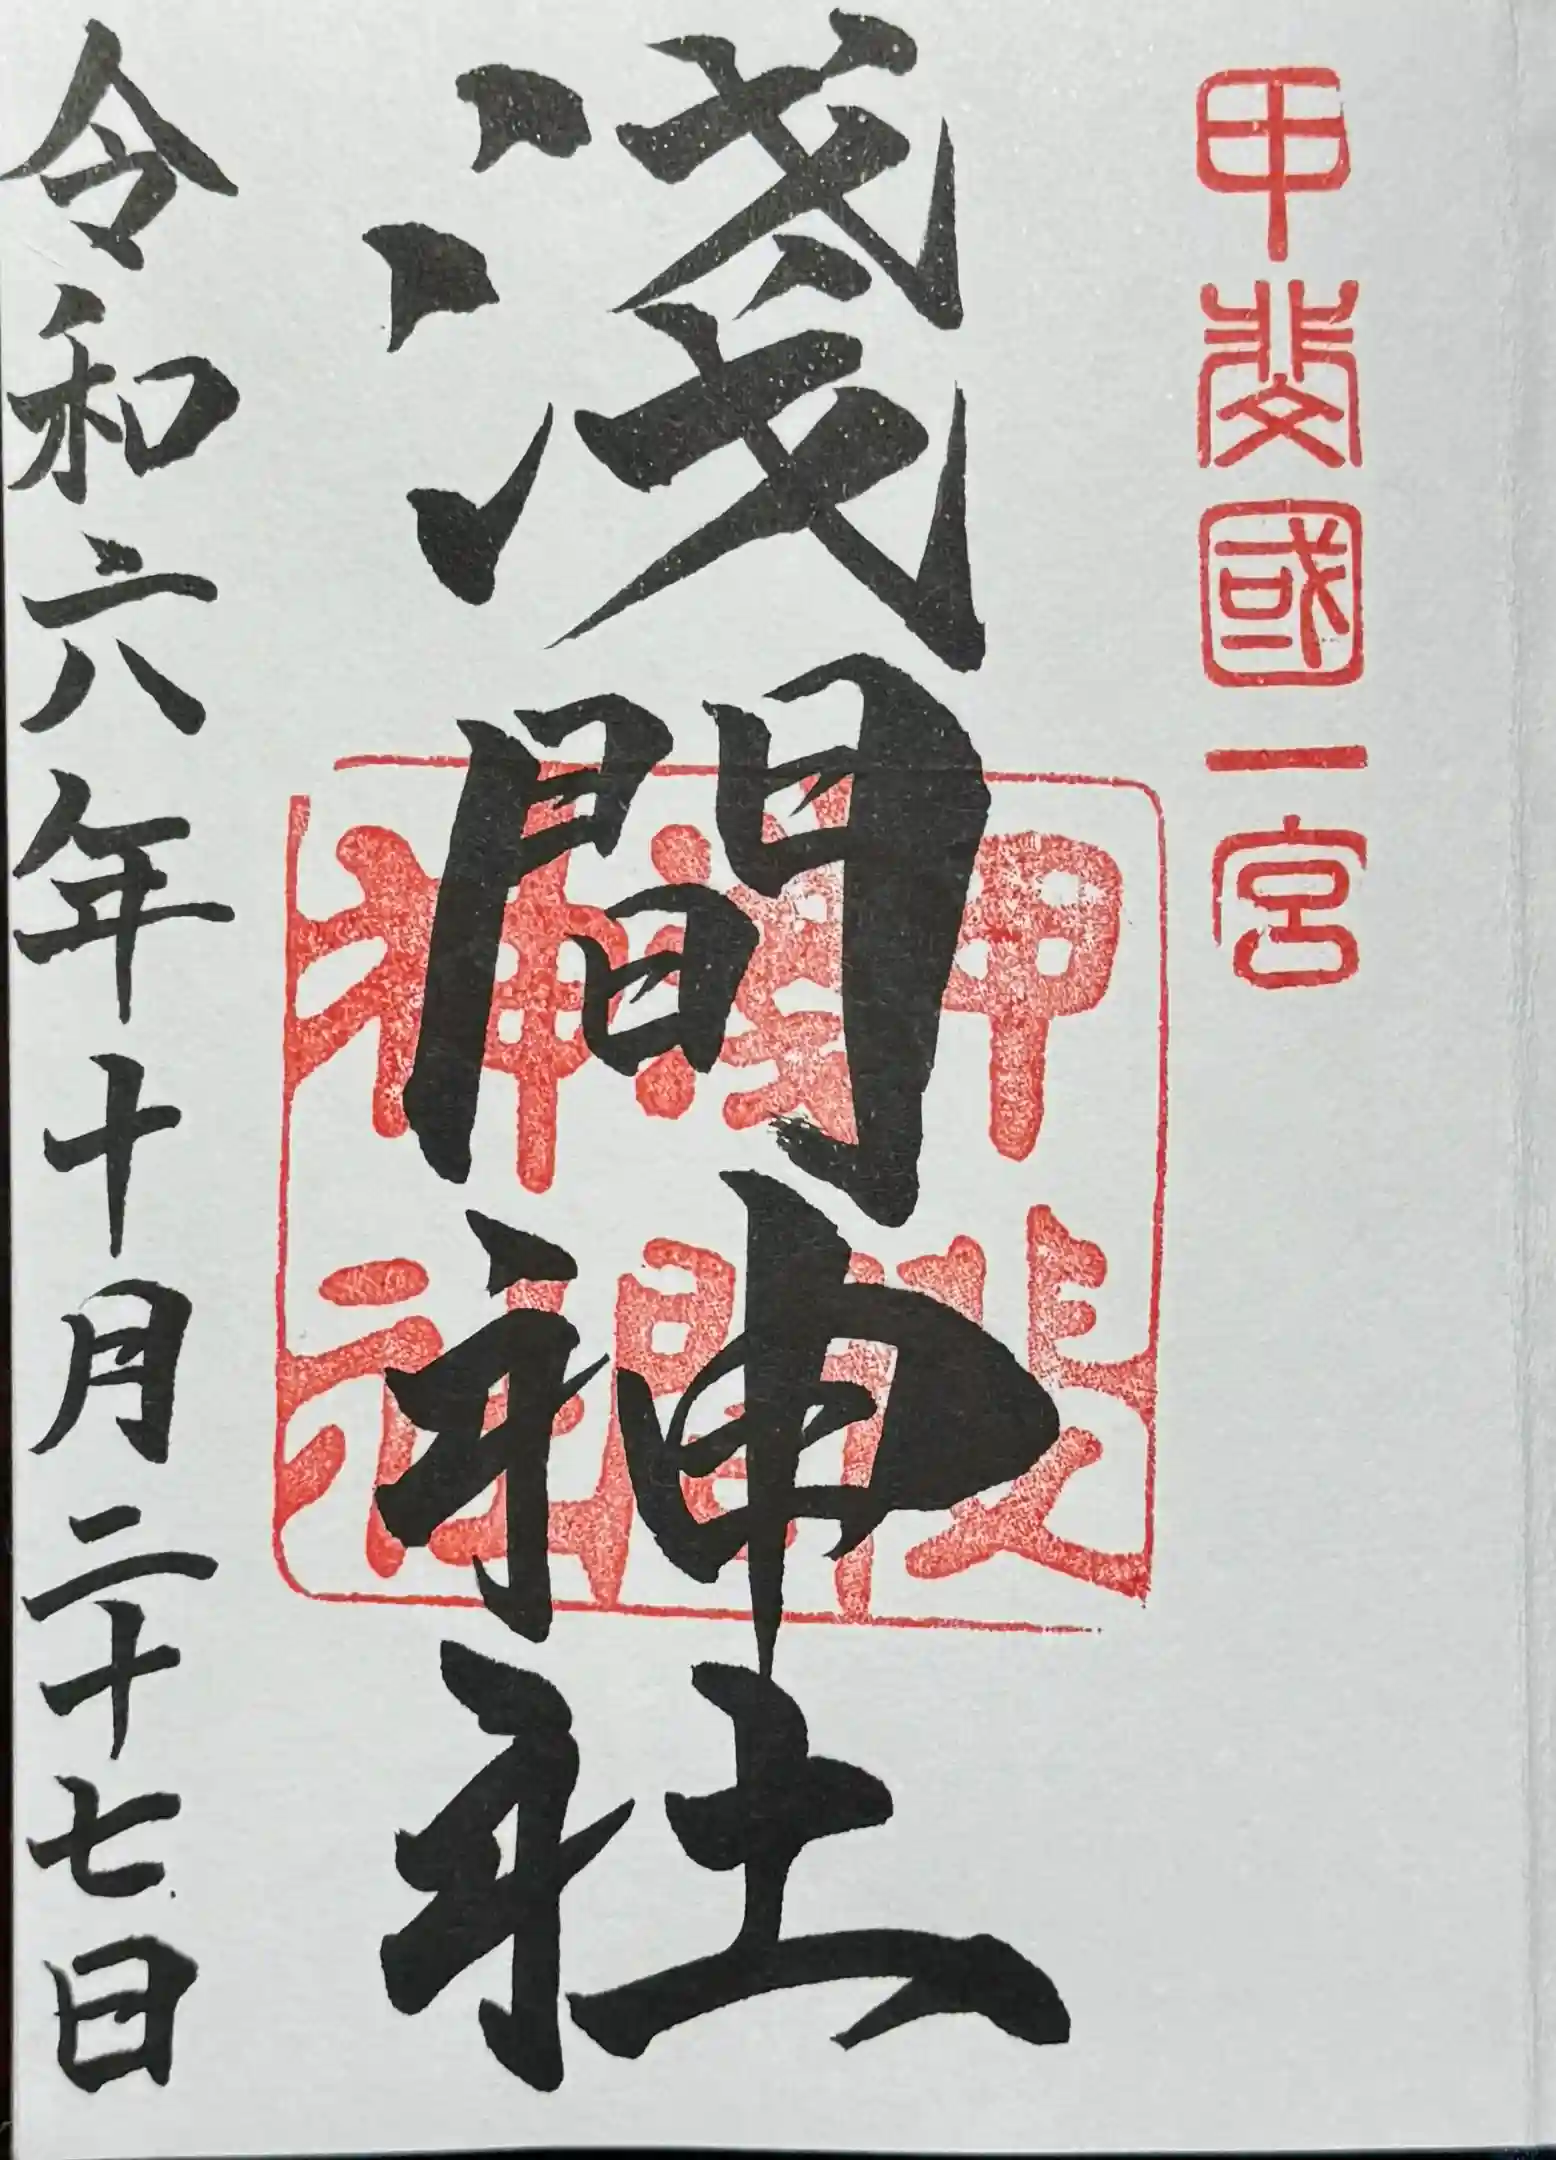 甲斐國一宮
淺間神社
甲斐
淺間
神社
令和六年十月二十七日